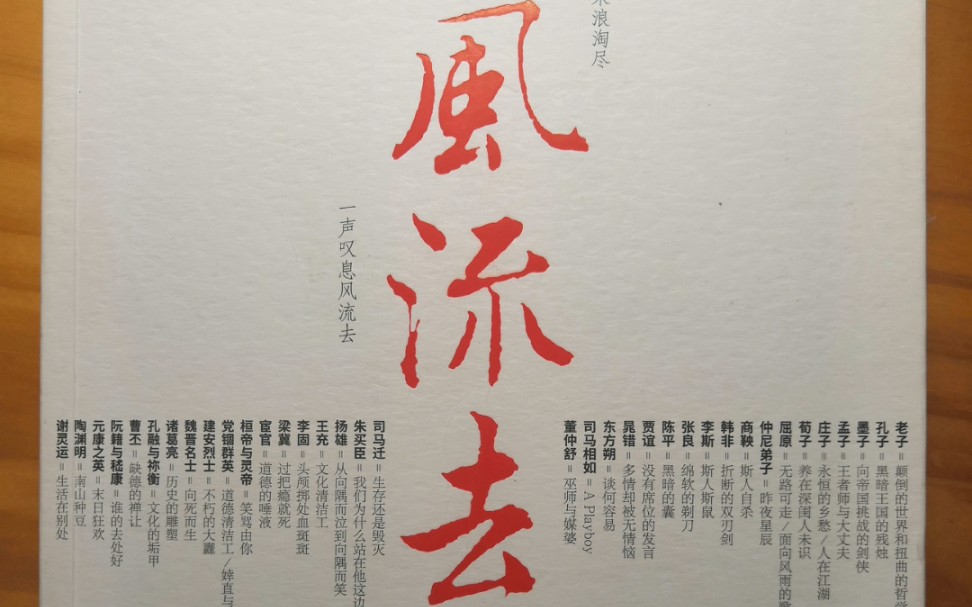 浪淘尽
風流去
一声叹息风流去
老子=颠倒的世界和扭曲的哲学
孔子=黑暗王国的残烛
墨子=向帝国挑战的剑侠
孟子=王者师与大丈夫
庄子=永恒的乡愁/人在江湖
荀子=养在深闺人未识
屈原=无路可走/面向风雨的歌
仲尼弟子=昨夜星辰
商鞅=斯人自杀
韩非=折断的双刃剑
李斯=斯人斯鼠
张良=绵软的剃刀
陈平=黑暗的囊
贾谊=没有席位的发言
晁错=多情却被无情恼
东方朔=谈何容易
司马相如=A Playboy
董仲舒=巫师与媒婆
司马迁=生存还是毁灭
朱买臣=我们为什么站在他这边
扬雄=从向隅而泣到向隅而笑
王充=文化清洁工
李固=头颅掷处血斑斑
梁冀=过把瘾就死
宦官=道德的唾液
桓帝与灵帝=笑骂由你
党锢群英=道德清洁工/婞直与
建安烈士=不朽的大纛
魏晋名士=向死而生
诸葛亮=历史的雕塑
孔融与祢衡=文化的垢甲
曹丕=缺德的禅让
阮籍与嵇康=谁的去处好
元康之英=末日狂欢
陶渊明=南山种豆
谢灵运=生活在别处